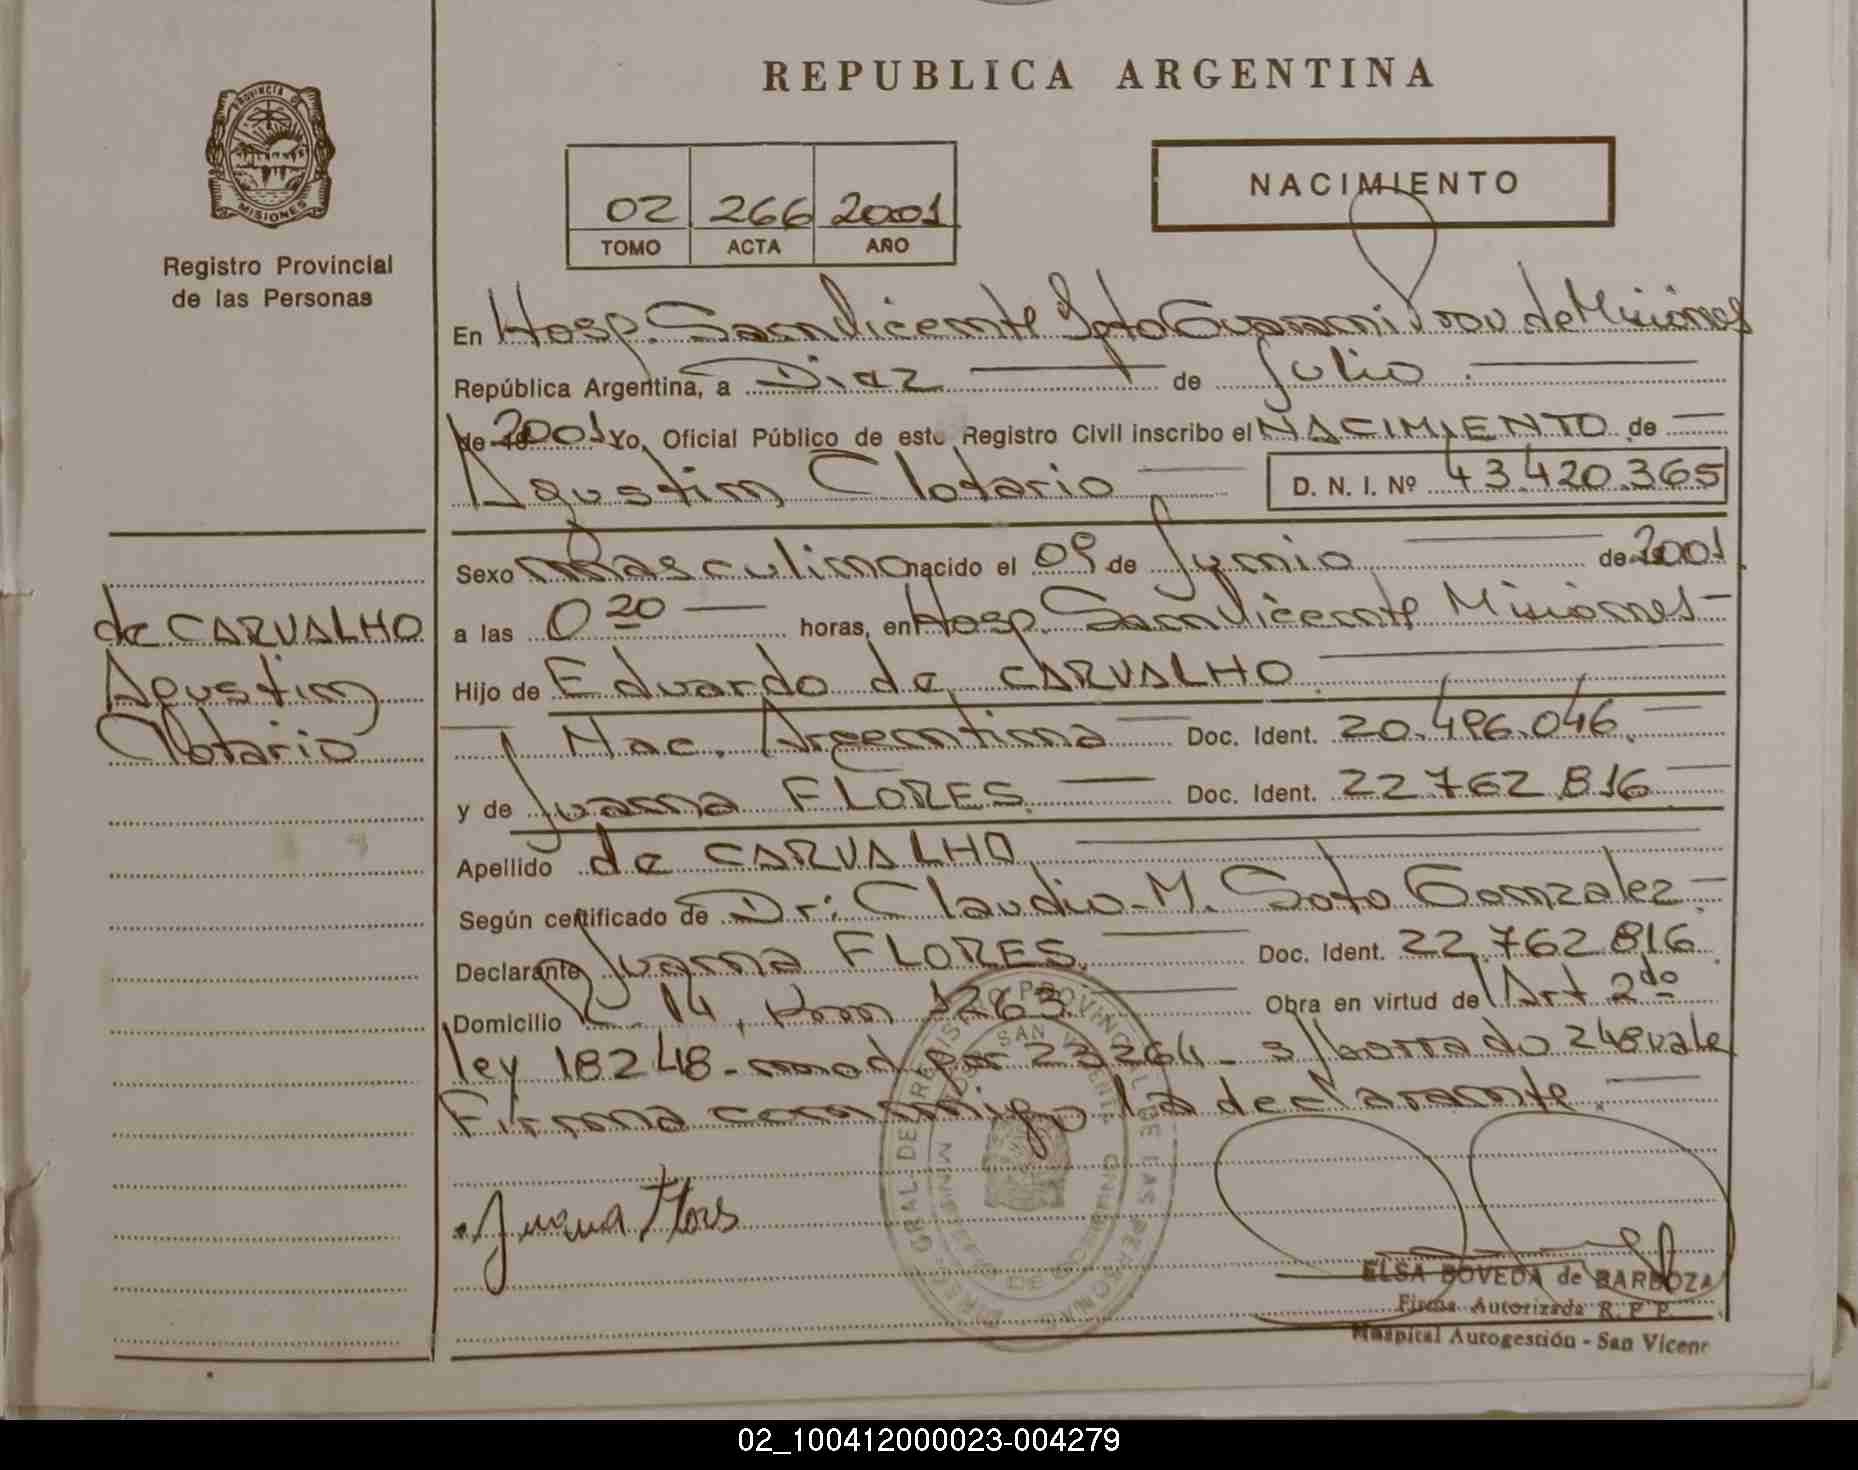 REPUBLICA ARGENTINA
PROVINCIA DE
MISIONES
Registro Provincial
de las Personas
02 266 2001
TOMO ACTA AÑO
NACIMIENTO
En Hosp. San Vicente Dpto Guarani Prov de Misiones
República Argentina, a Diez de Julio
de 2001 Yo, Oficial Público de este Registro Civil inscribo el NACIMIENTO de
Agustin Clotario D. N. I. Nº 43.420.365
Sexo Masculino nacido el 09 de Junio de 2001
a las 0 20 horas, en Hosp. San Vicente Misiones
Hijo de Eduardo de CARVALHO
Nac. Argentina Doc. Ident. 20.496.046
y de Juana FLORES Doc. Ident. 22 762 816
Apellido de CARVALHO
Según certificado de Dr: Claudio M. Soto Gonzalez
Declarante Juana FLORES Doc. Ident. 22.762 816
Domicilio 14, Km 1263 Obra en virtud de Art 2do
ley 18248 - mod por 23264 - s/borrado 248 vale
Firma conmigo la declarante.
de CARVALHO
Agustin
Clotario
Juana Flores
ELSA BOVEDA de BARBOZA
Firma Autorizada R. P. P.
Hospital Autogestión - San Vicen
02_100412000023-004279